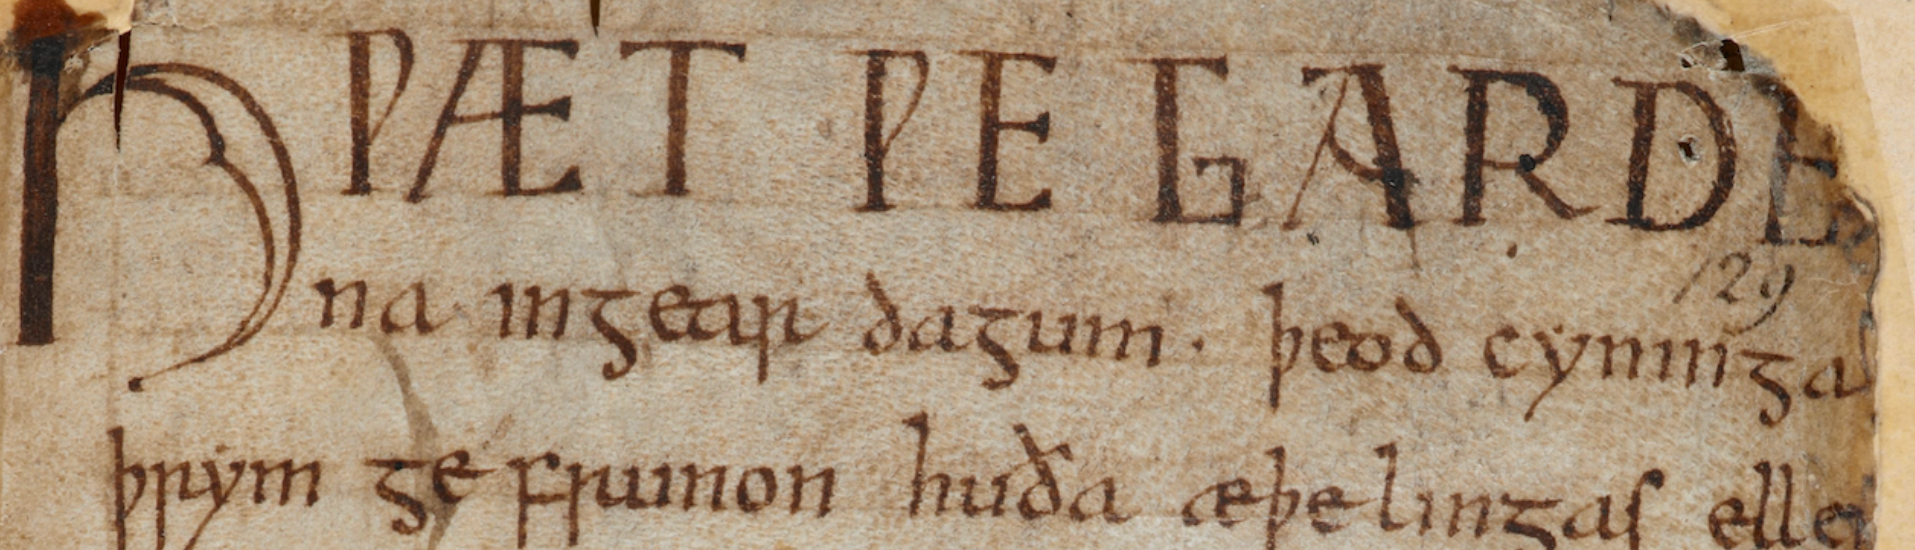 HǷÆT ǷE GARDE
na ingear dagum. þeod cyninga
129
þrym ge frunon huða æþelingas elle